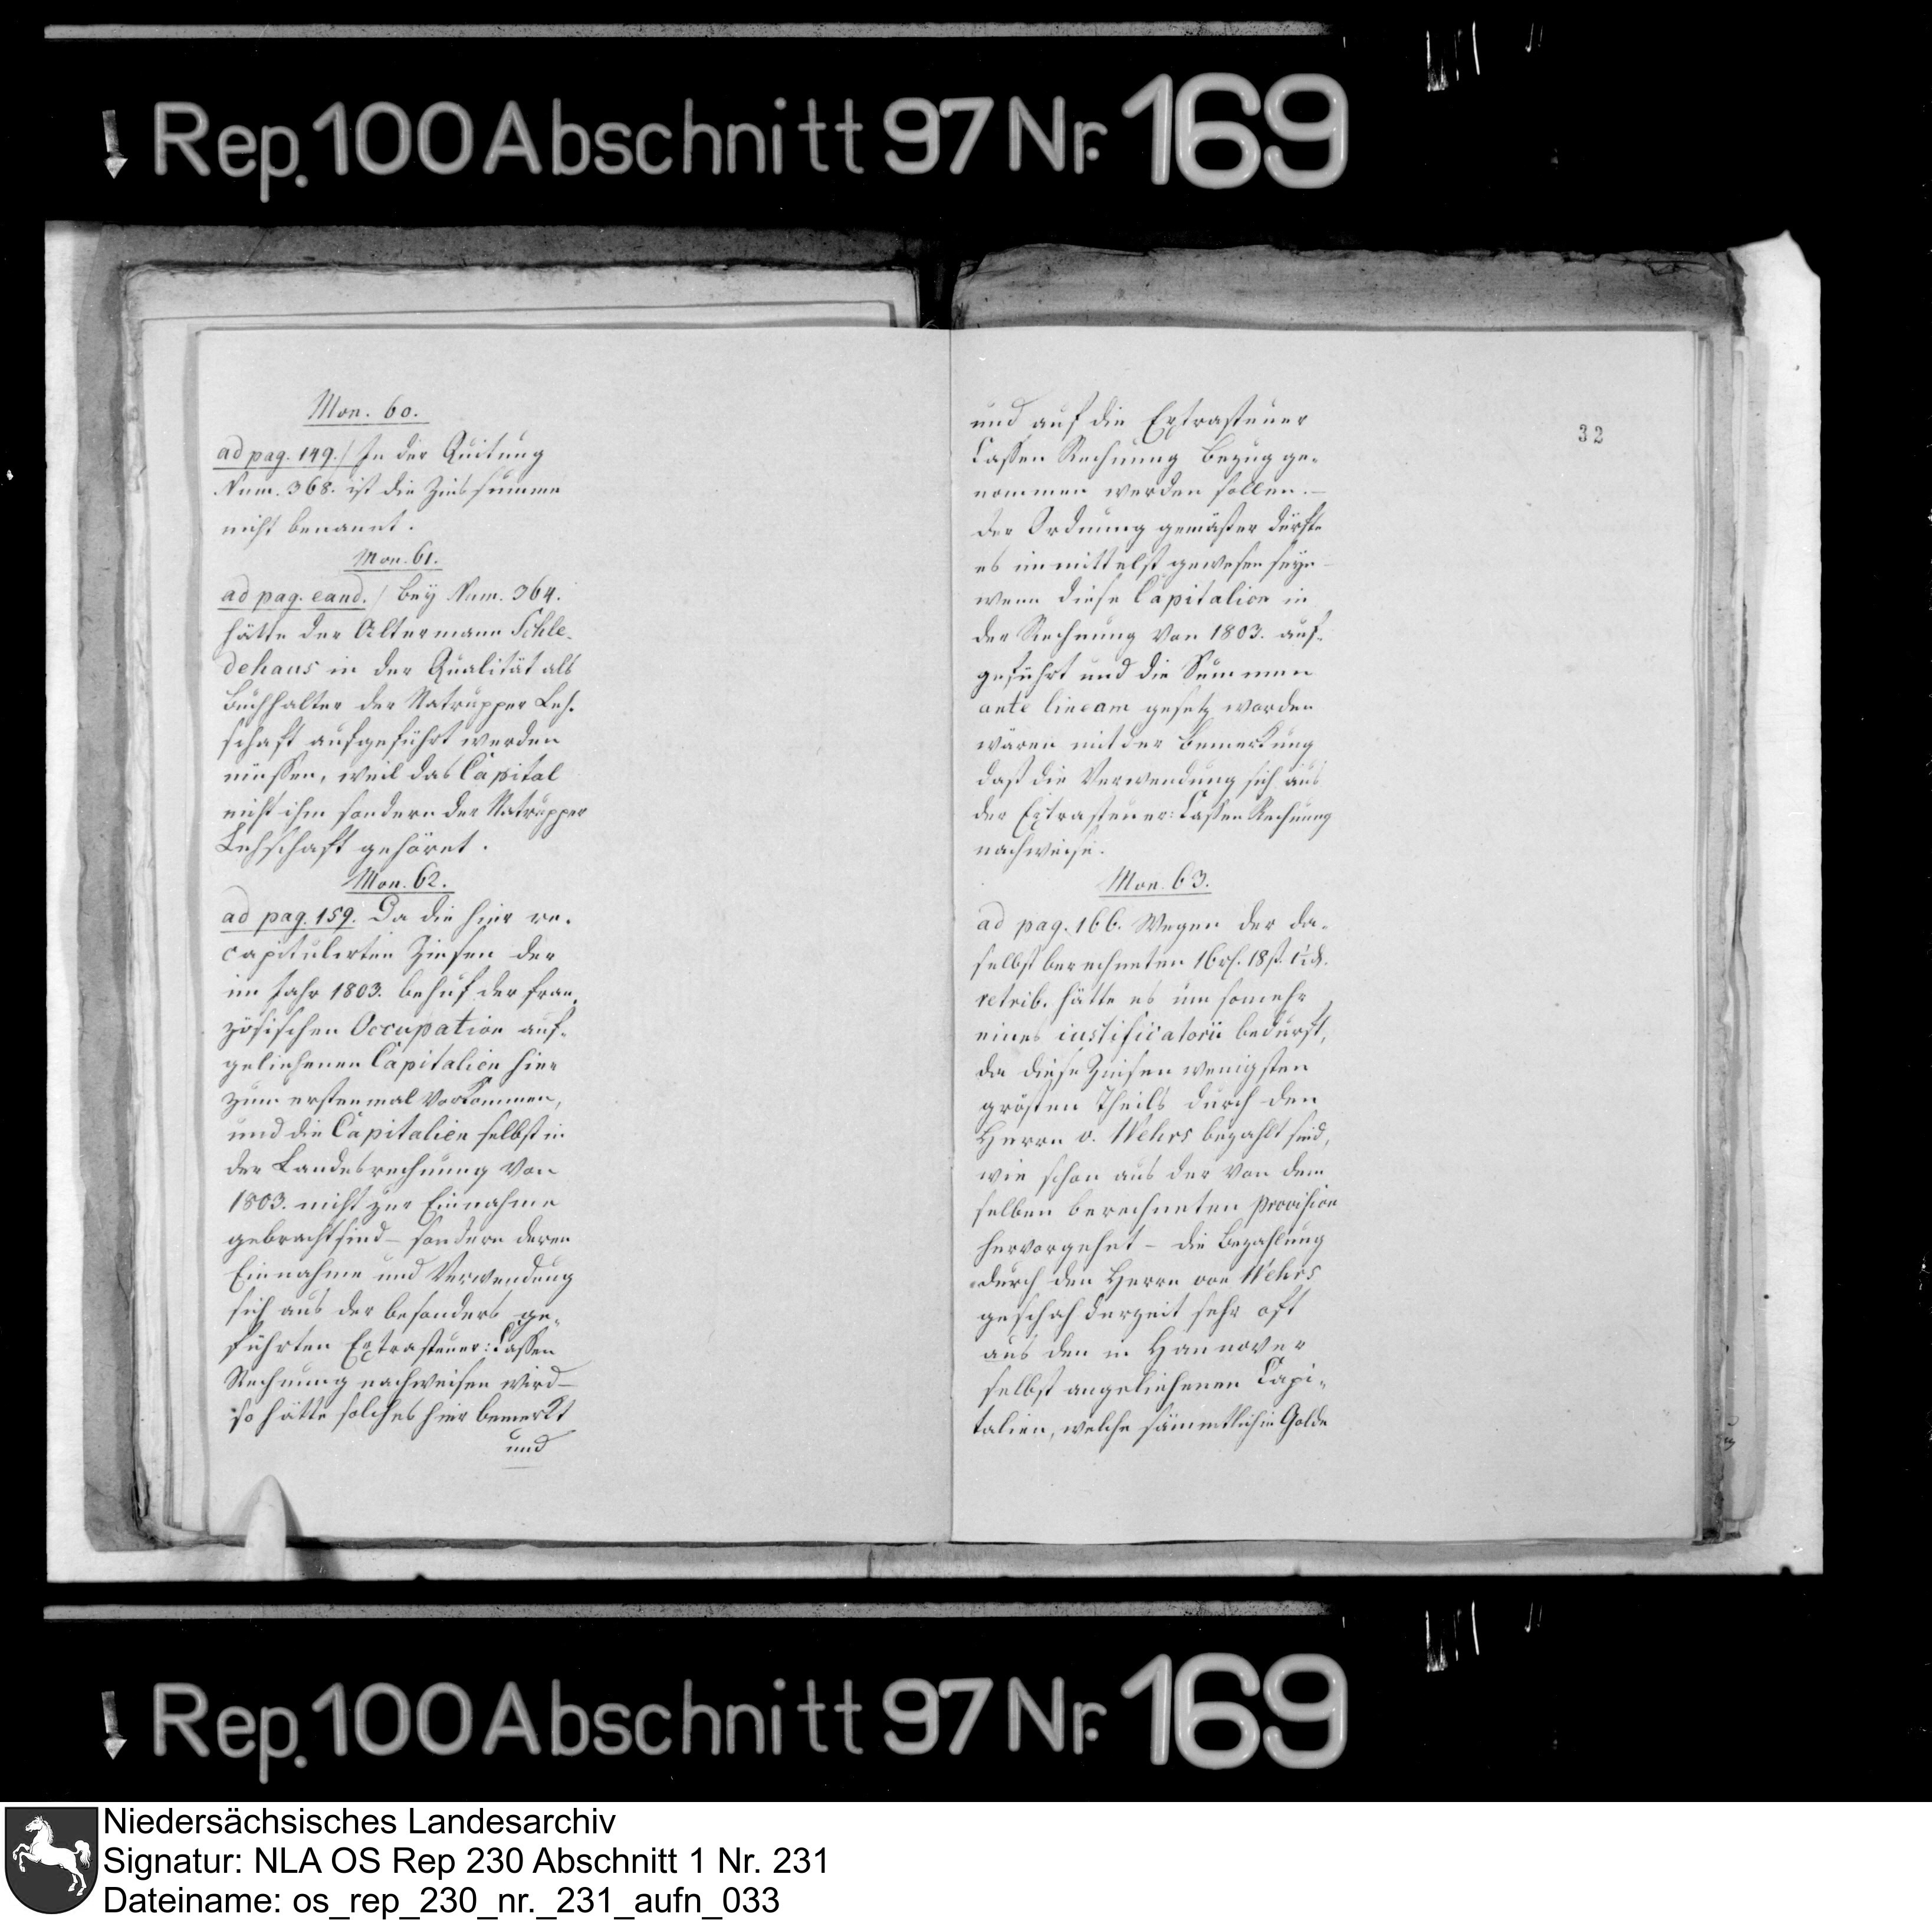 Rep. 100 Abschnitt 97 Nr. 169
Mon. 60.
ad pag. 149./ In der Quitung
Num. 368. ist die Zinssumme
nicht benannt.
Mon. 61.
ad pag. eand./ Bey Num. 364.
hätte der Altermann Schle-
dehaus in der Qualität als
Buchhalter der Natrupper Leh-
schaft aufgeführt werden
müssen, weil das Capital
nicht ihm sondern der Natrupper
Lehschaft gehöret.
Mon. 62.
ad pag. 159. Da die hier re-
capitulirten Zinsen der
im Jahr 1803. behuf der fran
zösischen Occupation auf-
geliehenen Capitalien hier
zum erstenmal vorkommen,
und die Capitalien selbst in
der Landesrechnung von
1803. nicht zur Einnahme
gebracht sind – sondern deren
Einnahme und Verwendung
sich aus der besonders ge-
führten Extrasteuer: Cassen
Rechnung nachweisen wird –
so hätte solches hier bemerkt
und
32
und auf die Extrasteuer
Cassen Rechnung Bezug ge-
nommen werden sollen. –
Der Ordnung gemäßer dürfte
es inmittelst gewesen seyn
wenn diese Capitalien in
der Rechnung von 1803. auf-
geführt und die Summen
ante lineam gesetz worden
wären mit der Bemerkung
daß die Verwendung sich aus
der Extrasteuer: Cassen Rechnung
nachweise.
Mon. 63.
ad pag. 166. Wegen der da-
selbst berechneten 16 rf. 18 ß. 1½ d.
retrib. hätte es um somehr
eines iustificatorii bedurft,
da diese Zinsen wenigsten
grösten Theils durch den
Herrn v. Wehrs bezahlt sind,
wie schon aus der von dem
selben berechneten Provision
hervorgehet – die Bezahlung
durch den Herrn von Wehrs
geschah derzeit sehr oft
aus den in Hannover
selbst angeliehenen Capi-
talien, welche sämmtlich in Golde
Rep. 100 Abschnitt 97 Nr. 169
Niedersächsisches Landesarchiv
Signatur: NLA OS Rep 230 Abschnitt 1 Nr. 231
Dateiname: os_rep_230_nr._231_aufn_033